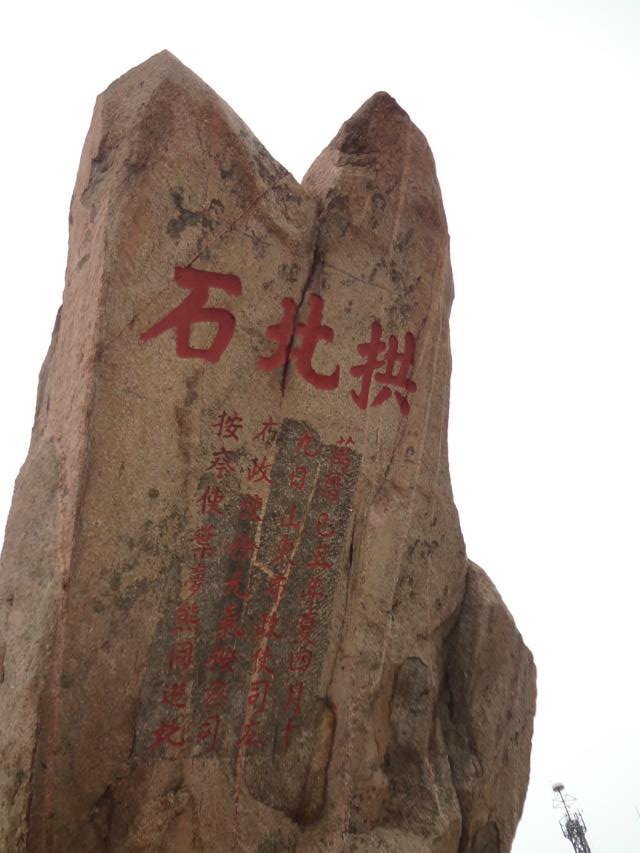 拱北石
萬曆己丑年夏四月十
九日山東布政使司左
布政使徐元氣按察司
按察使葉夢熊同遊此